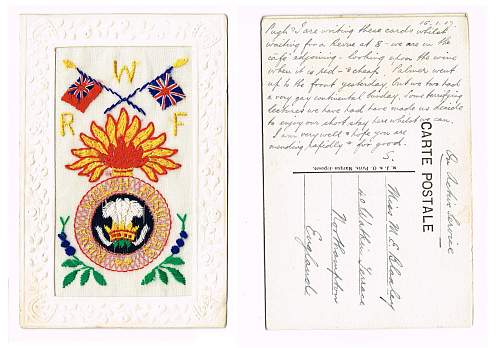 W
R F
15.1.17
Pugh & I are writing these cards whilst
waiting for a Revue at 8 - we are in the
café adjoining. Looking upon the wine
when it is red - & cheap. Palmer went
up to the front yesterday but we two had
a very gay continental Sunday. Some terrifying
lectures we have had have made us decide
to enjoy our short stay here whilst we can.
I am very well & hope you are
mending rapidly & for good.
S.
CARTE POSTALE
On Active Service
Miss M. E.
Terrace
Northampton
England